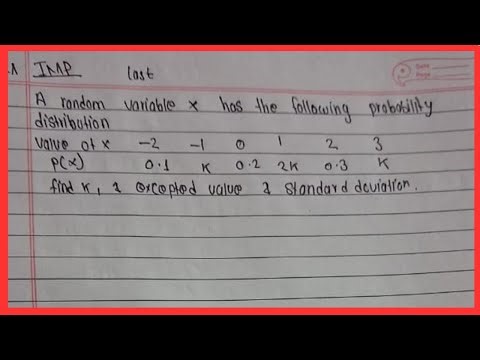 IMP last
A random variable x has the following probability
distribution
value of x -2 -1 0 1 2 3
P(x) 0.1 K 0.2 2K 0.3 K
find K, 2 excepted value 3 standard deviation.